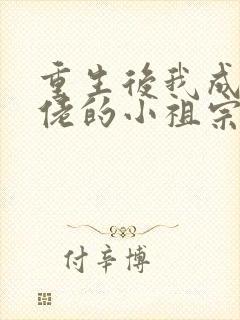 重生後我成
佬的小祖宗
付辛博